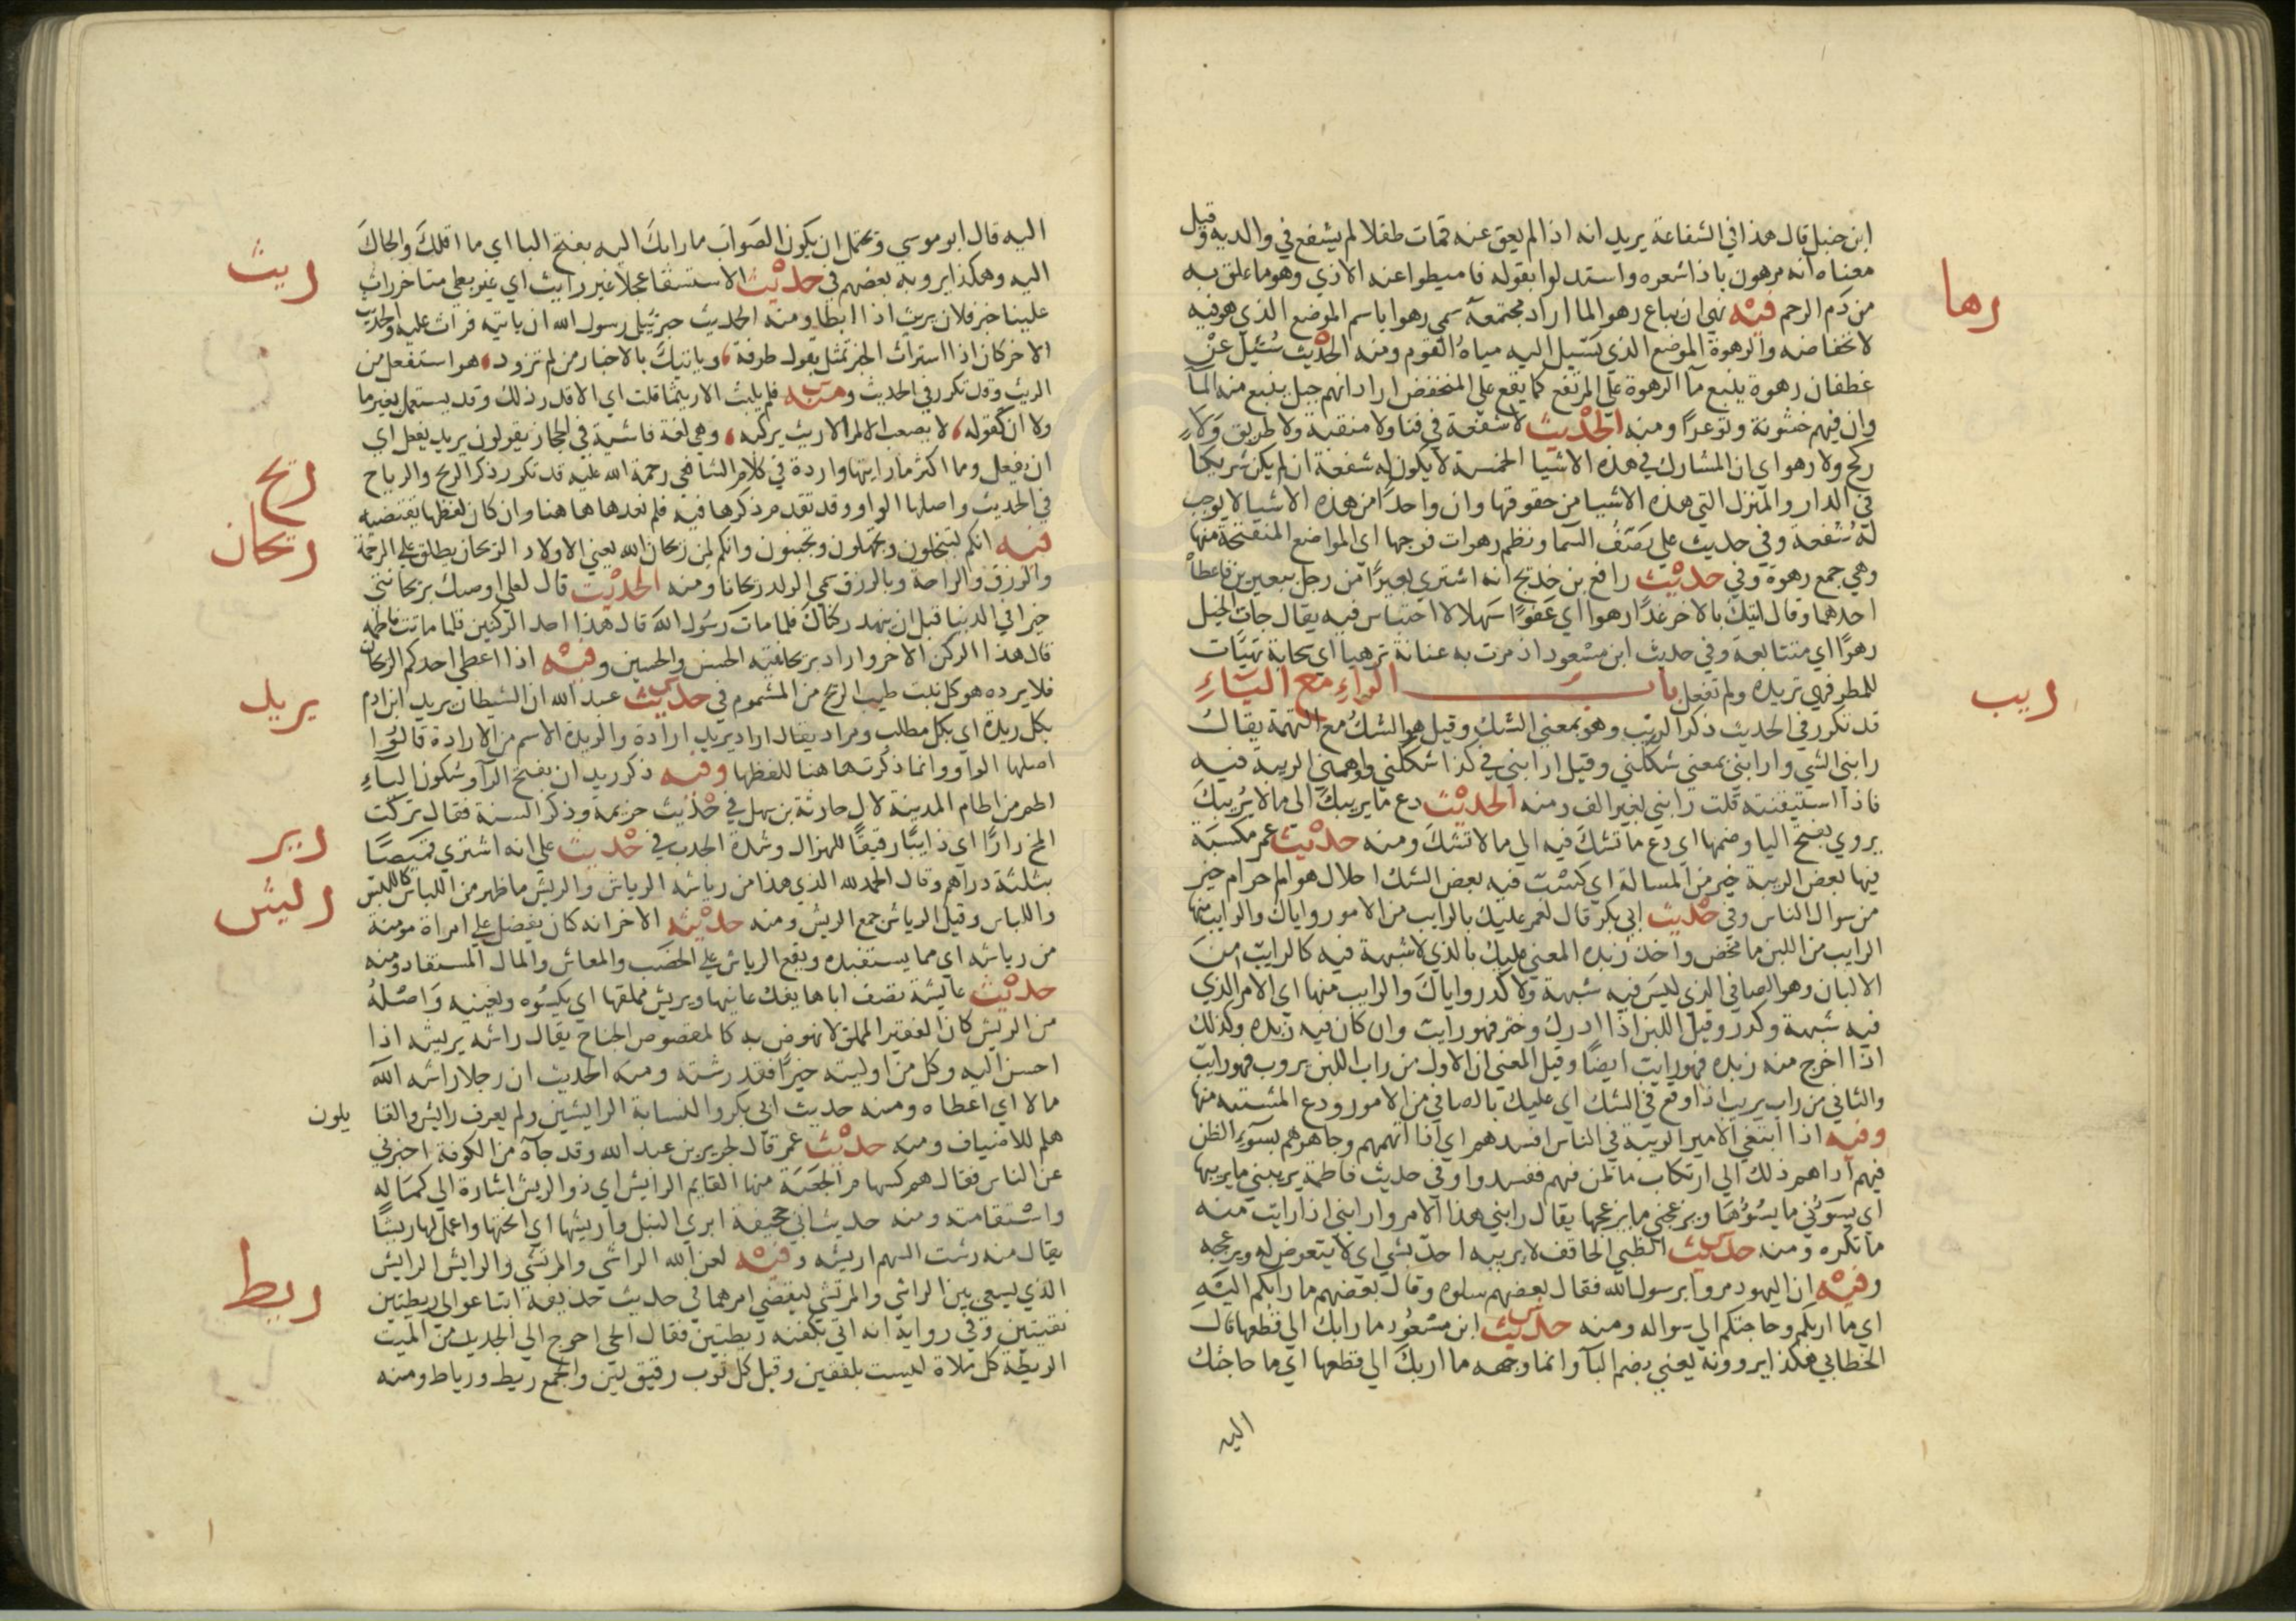 ابن حنبل قال هذا في الشفاعة يريد انه اذا لم يعق عنه فمات طفلا لم يشفع في والديه وقيل
معناه انه مرهون باذا شعره واستدلوا بقوله فاميطوا عنه الاذي وهو ما علق به
رها
من دم الرحم فيه نهي ان يباع رهو الما اراد مجتمعه سمي رهوا باسم الموضع الذي هو فيه
لانخفاضه والرهوة الموضع الذي تسيل اليه مياه القوم ومنه الحديث سئيل عن
غطفان رهوة ينبع مآ الرهوة علي المرتفع كما يقع علي المنخفض اراد انهم جبل ينبع منه المآ
وان فيهم خشونة وتوعرا ومنه الحديث لا شفعة في فنا ولا منقبة ولا طريق ولا
ركح ولا رهو اي ان المشارك في هذه الاشيا الخمسة لا يكون له شفعة ان لم يكن شريكا
في الدار والمنزل التي هذه الاشيا من حقوقها وان واحدا من هذه الاشيا لا يوجب
له شفعة وفي حديث علي يصف السما ونظم رهوات فرجها اي المواضع المنفتحة منها
وهي جمع رهوة وفي حديث رافع بن خديج انه اشتري بعيرا من رجل ببعيرين فاعطاه
احدهما وقال اتيك بالاخر غدا رهوا اي عفوا سهلا لا احتباس فيه يقال جات الخيل
رهوا اي متتابعة وفي حديث ابن مسعود اذ مرت به عنانة ترهيا اي سحابة تهيات
للمطر فهي تريده ولم تفعل باب الراء مع الياء
ريب
قد تكرر في الحديث ذكر الريب وهو بمعني الشك وقيل هو الشك مع التهمة يقال
رابني الشي وارابني بمعني شككني وقيل ارابني في كذا شككني واوهمني الريبة فيه
فاذا استيقنته قلت رابني بغير الف ومنه الحديث دع ما يريبك الي ما لا يريبك
يروي بفتح اليا وضمها اي دع ما تشك فيه الي ما لا تشك ومنه حديث عمر مكسبة
فيها بعض الريبة خير من المسالة اي كسب فيه بعض الشك احلال هو ام حرام خير
من سوال الناس وفي حديث ابي بكر قال لعمر عليك بالرايب من الامور واياك والرايب منها
الرايب من اللبن ما مخض واخذ زبده المعني عليك بالذي لا شبهة فيه كالرايب من
الالبان وهو الصافي الذي ليس فيه شبهة ولا كدر واياك والرايب منها اي الامر الذي
فيه شبهة وكدر وقيل اللبن اذا ادرك وخثر فهو رايب وان كان فيه زبده وكذلك
اذا اخرج منه زبده فهو رايب ايضا وقيل المعني ان الاول من راب اللبن يروب فهو رايب
والثاني من راب يريب اذا وقع في الشك اي عليك بالصافي من الامور ودع المشتبه منها
وفيه اذا ابتغي الامير الريبة في الناس افسدهم اي اذا اتهمهم وجاهرهم بسوء الظن
فيهم اداهم ذلك الي ارتكاب ما ظن فيهم ففسدوا وفي حديث فاطمة يريبني ما يريبها
اي يسوئني ما يسؤها ويزعجني ما يزعجها يقال رابني هذا الامر وارابني اذا رايت منه
ما تكره ومنه حديث الظبي الحاقف لا يريبه احد بشي اي لا يتعرض له ويزعجه
وفيه ان اليهود مروا برسول الله فقال بعضهم سلوه وقال بعضهم ما رابكم اليه
اي ما اربكم وحاجتكم الي سواله ومنه حديث ابن مسعود ما رابك الي قطعها قال
الخطابي هكذا يروونه يعني بضم البآ وانما وجهه ما اربك الي قطعها اي ما حاجتك
اليه
اليه قال ابو موسي ويحتمل ان يكون الصواب ما رابك اليه بفتح البا اي ما اقلقك والجاك
اليه وهكذا يرويه بعضهم في حديث الاستسقا عجلا غير رايث اي غير بطي متاخر راث
ريث
علينا خبر فلان يريث اذا ابطا ومنه الحديث جبرئيل رسول الله ان ياتيه فراث عليه والحديث
الاخر كان اذا استراث الخبر تمثل بقول طرفة وياتيك بالاخبار من لم تزود هو استفعل من
الريث وقد تكرر في الحديث ومنه فلم يلبث الا ريثما قلت اي الا قدر ذلك وقد يستعمل بغير ما
ولا ان كقوله لا يصعب الامر الا ريث يركبه وهي لغة فاشية في الحجاز يقولون يريد يفعل اي
ان يفعل وما اكثر ما رايتها واردة في كلام الشافعي رحمة الله عليه قد تكرر ذكر الريح والرياح
ريح
في الحديث واصلها الواو وقد تقدم ذكرها فيه فلم نعدها هاهنا وان كان لفظها يقتضيه
ريحان
فيه انكم لتبخلون وتجهلون وتجبنون وانكم لمن ريحان الله يعني الاولاد الريحان يطلق علي الرحمة
والرزق والراحة وبالرزق سمي الولد ريحانا ومنه الحديث قال لعلي اوصيك بريحانتي
خيرا في الدنيا قبل ان ينهد ركناك فلما مات رسول الله قال هذا احد الركنين فلما ماتت فاطمه
قال هذا الركن الاخر واراد بريحانتيه الحسن والحسين وفيه اذا اعطي احدكم الريحان
فلا يرده هو كل نبت طيب الريح من المشموم في حديث عبد الله ان الشيطان يريد ابن ادم
يريد
بكل ريدة اي بكل مطلب ومراد يقال اراد يريد ارادة والريدة الاسم من الارادة قالوا
اصلها الواو وانما ذكرت هاهنا للفظها وفيه ذكر ريدان بفتح الرآ وسكون اليآء
اطم من اطام المدينة لال حارثة بن سهل في حديث خزيمة وذكر السنة فقال تركت
رير
المخ رارا اي ذايبا رقيقا للهزال وشدة الجدب في حديث علي انه اشتري قميصا
ريش
بثلثة دراهم وقال الحمد لله الذي هذا من رياشه الرياش والريش ما ظهر من اللباس كاللبس
واللباس وقيل الرياش جمع الريش ومنه حديثه الاخر انه كان يفضل علي امراة مومنة
من رياشه اي مما يستفيده ويقع الرياش علي الخصب والمعاش والمال المستفاد ومنه
حديث عايشة تصف اباها يفك عانيها ويريش مملقها اي يكسوه ويعينه واصله
من الريش كان الفقير المملق لا نهوض به كالمقصوص الجناح يقال راشه يريشه اذا
احسن اليه وكل من اوليته خيرا فقد رشته ومنه الحديث ان رجلا راشه الله
مالا اي اعطاه ومنه حديث ابي بكر والنسابة الرايشين ولم يعرف رايش والقا
يلون
هلم للاضياف ومنه حديث عمر قال لجرير بن عبد الله وقد جآه من الكوفة اخبرني
عن الناس فقال هم كسهام الجعبة منها القايم الرايش اي ذو الريش اشارة الي كماله
واستقامته ومنه حديث ابي جحيفة ابري النبل واريشها اي انحتها واعمل لها ريشا
يقال منه رشت السهم اريشه وفيه لعن الله الراشي والمرتشي والرايش الرايش
الذي يسعي بين الراشي والمرتشي ليقضي امرهما في حديث حذيفة ابتاعوا لي ريطتين
ريط
نقيتين وفي رواية انه اتي بكفنه ريطتين فقال الحي احوج الي الجديد من الميت
الريطة كل ملاة ليست بلفقين وقيل كل ثوب رقيق لين والجمع ريط ورياط ومنه